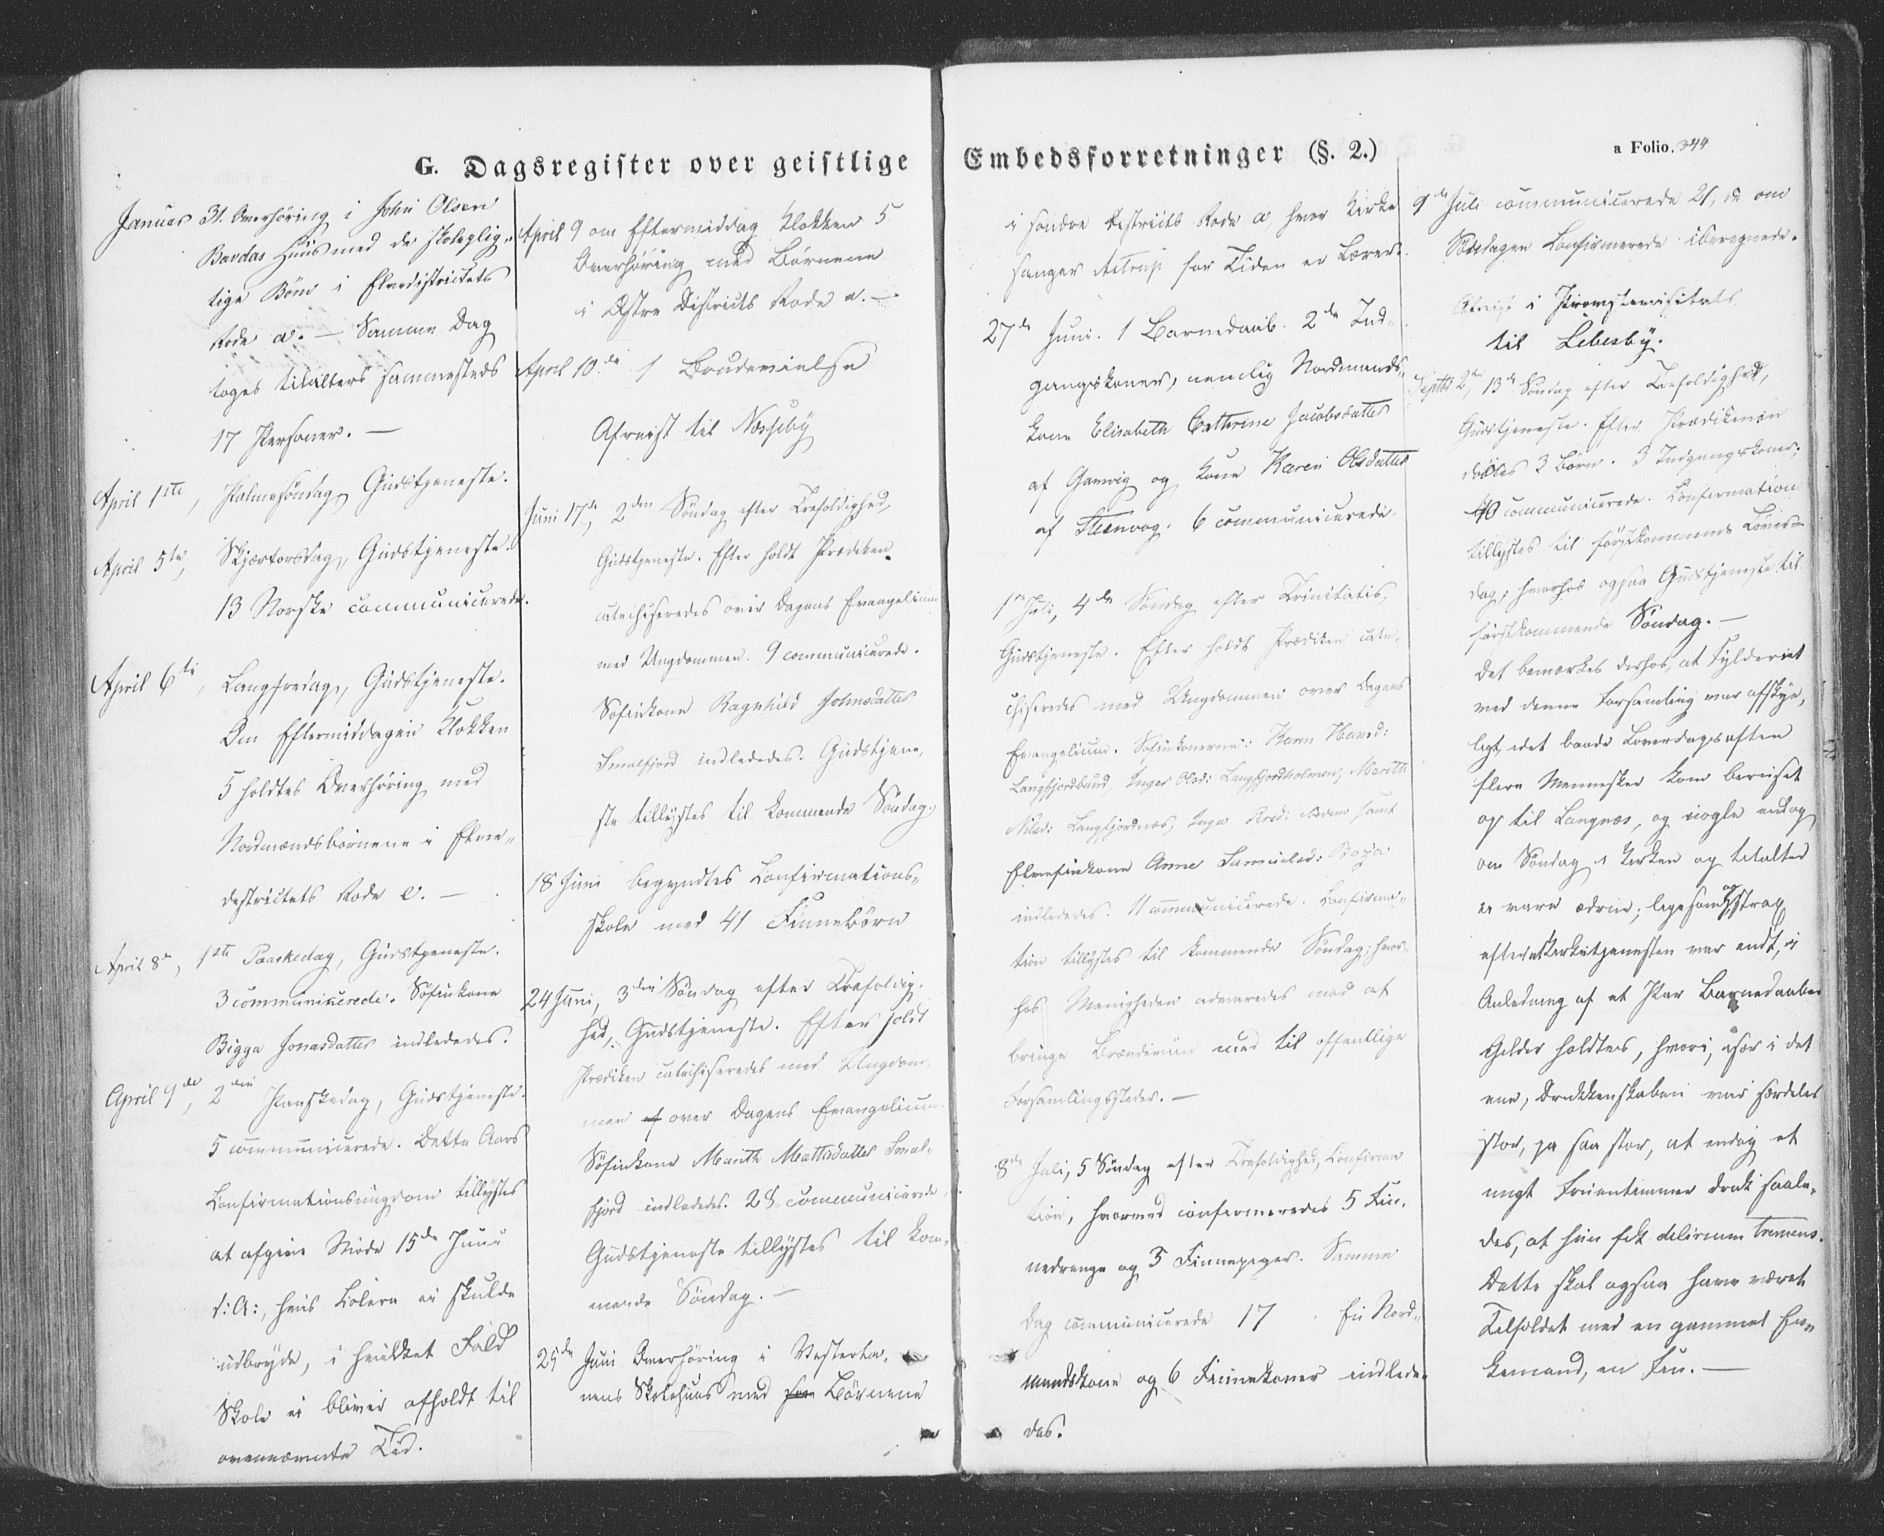 G. Dagsregister over geistlige
Embedsforretninger (§. 2.)
a Folio. 344
Januar 31. Overhöring i John Olsen
Huus med de skolepligtige
Börn i Elvedistrictets
Rode a. — Samme Dag
toges tilalters sammesteds
17 Personer. —
April 1ste, Palmesöndag, Gudstjeneste.
April 5te, Skjærtorsdag, Gudstjeneste.
13 Norske communicerede.
April 6te, Langfredag, Gudstjeneste.
Om Eftermiddagen Klokken
5 holdtes Overhöring med
Nordmændsbörnene i Elve-
districtets Rode e. —
April 8de, 1ste Paaskedag, Gudstjeneste.
3 communicerede. Söfinkone
Bigga Jonasdatter indlededes.
April 9de, 2den Paaskedag, Gudstjeneste.
5 communicerede. Dette Aars
Confirmationsungdom tillystes
at afgive Möde 15de Juni
d: A:, hvis Colera ei skulde
udbryde, i hvilket Fald
Skole ei bliver afholdt til
ovennævnte Tid.
April 9 om Eftermiddag Klokken 5
Overhöring med Börnene
i Östre Districts Rode a. —
April 10de 1 Brudevielse
Afreist til Næsseby
Juni 17de, 2den Söndag efter Trefoldighed,
Gudstjeneste. Efter holdt Prædiken
catechiseredes over Dagens Evangelium
med Ungdommen. 9 communicerede.
Söfinkone Ragnhild Johnsdatter
Smalfjord indlededes. Gudstjene-
ste tillystes til kommende Söndag.
18 Juni begyndtes Confirmations-
skole med 41 Finnebörn
24 Juni, 3die Söndag efter Trefoldig-
hed, Gudstjeneste. Efter holdt
Prædiken catechiseredes med Ungdom-
men over Dagens Evangelium.
Söfinkone Marith Mathisdatter Smal-
fjord indlededes. 28 communicerede.
Gudstjeneste tillystes til kom-
mende Söndag. —
25de Juni Overhöring i Vestertanens
Skolehuus med Börnene
i söndre Districts Rode a, hvor Kirke
sanger Astrup for Tiden er Lærer.
27de Juni. 1 Barnedaab. 2de Ind-
gangskoner, nemlig Nordmands-
kone Elisabeth Cathrine Jacobsdatter
af Gamvig og Kone Karen Olsdatter
af Steenvog. 6 communicerede
1ste Juli, 4de Söndag efter Trinitatis,
Gudstjeneste. Efter holdt Prædiken cate-
chiseredes med Ungdommen over Dagens
Evangelium. Söfinkonerne: Karen Hansd:
Langfjordbund, Inger Olsd: Langfjordholmen, Marith
Nilsd: Langfjordnæs, Inga samt
Elvefinkone Anne Samuelsd:
indlededes. 11 communicerede. Confirma-
tion tillystes til kommende Söndag; hvor-
hos Menigheden advaredes mod at
bringe Brændeviin med til offentlige
Forsamlingssteder. —
8de Juli, 5 Söndag efter Trefoldighed, Confirma-
tion, hvorved confirmeredes 5 Fin-
nedrenge og 3 Finnepiger. Samme
Dag communicerede 17. En Nord-
mandskone og 6 Finnekoner indlede-
des.
9de Juli communicerede 21, de om
Söndagen Confirmerede iberegnede.
Afreist i Provstevisitats
til Lebesby.
Septbr 2den, 13de Söndag efter Trefoldighed,
Gudstjeneste. Efter Prædikenen
döbtes 3 Börn. 3 Indgangskoner,
40 communicerede. Confirmation
tillystes til förstkommende Löver-
dag, hvorhos ogsaa Gudstjeneste til
förstkommende Söndag. —
Det bemærkes derhos, at Fylderiet
ved denne Forsamling var afskye-
ligt, idet baade Löverdagsaften
flere Mennesker kom beruset
op til Langnæs, og nogle endog
om Söndag i Kirken og tilalters
ei vare ædrue; ligesom og strax
efterat Kirketjenesten var endt, i
Anledning af et Par Barnedaaber
Gilder holdtes, hvori, især i det
ene, Drukkenskaben var særdeles
stor, ja saa stor, at endog et
ungt Fruentimmer drak saale-
des, at hun fik delirium tremens.
Dette skal ogsaa have været
Tilfældet med en gammel En-
kemand, en Fin. —